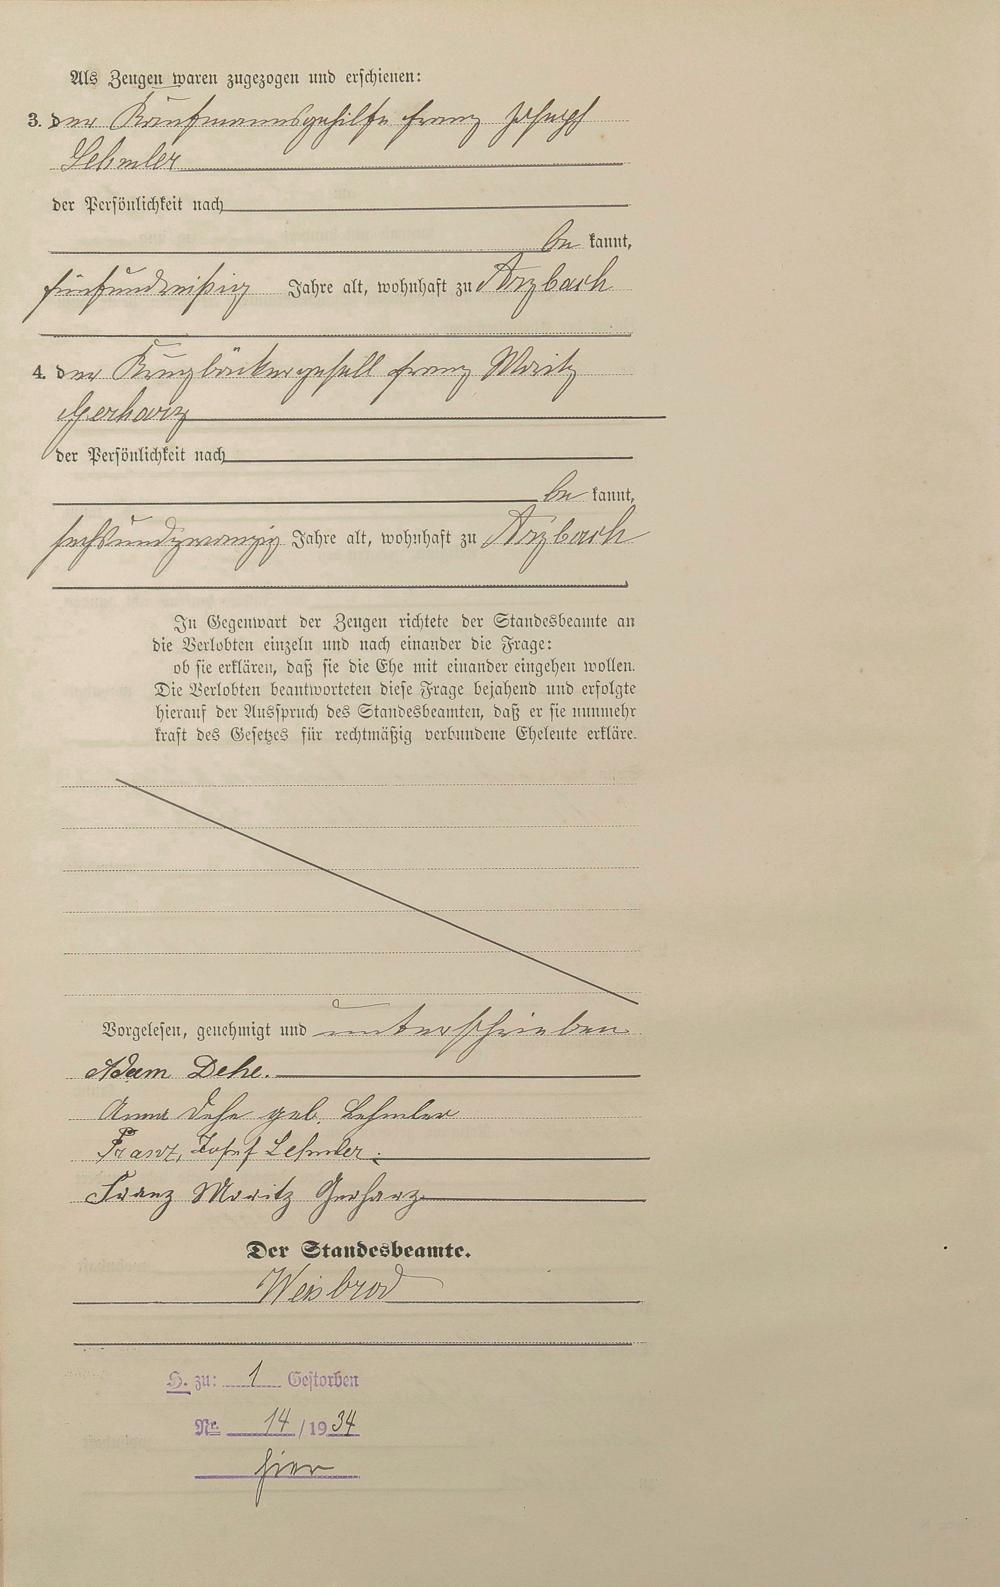 Als Zeugen waren zugezogen und erschienen:
3. der Kaufmannsgehilfe Franz Joseph
Lehmler
der Persönlichkeit nach
be kannt,
fünfunddreißig Jahre alt, wohnhaft zu Arzbach
4. der Krugbäckergesell Franz Moritz
Gerharz
der Persönlichkeit nach
be kannt,
sechsundzwanzig Jahre alt, wohnhaft zu Arzbach
In Gegenwart der Zeugen richtete der Standesbeamte an
die Verlobten einzeln und nach einander die Frage:
ob sie erklären, daß sie die Ehe mit einander eingehen wollen.
Die Verlobten beantworteten diese Frage bejahend und erfolgte
hierauf der Ausspruch des Standesbeamten, daß er sie nunmehr
kraft des Gesetzes für rechtmäßig verbundene Eheleute erkläre.
Vorgelesen, genehmigt und unterschrieben
Adam Dehe.
Anna Dehe geb. Lehmler
Franz, Josef Lehmler.
Franz Moritz Gerharz
Der Standesbeamte.
Weisbrod
H. zu: 1 Gestorben
Nr. 14 / 1934
hier